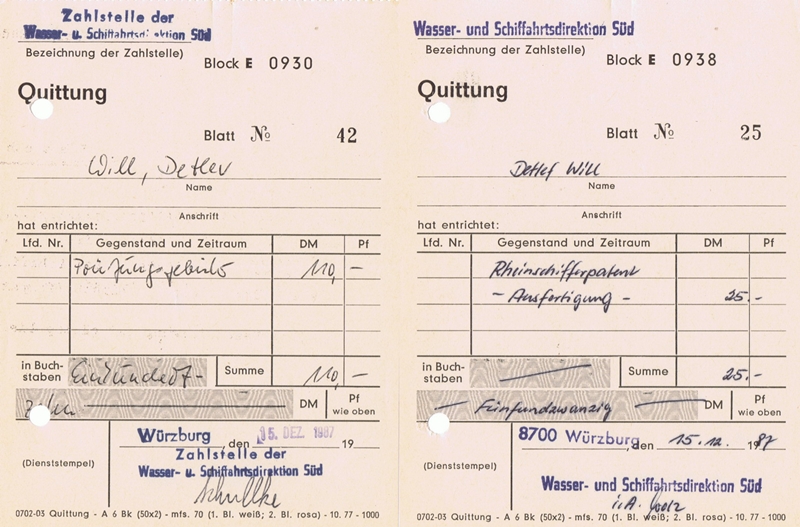 Zahlstelle der
Wasser- u. Schiffahrtsdirektion Süd
Bezeichnung der Zahlstelle)
Block E 0930
Quittung
Blatt № 42
Will, Detlev
Name
Anschrift
hat entrichtet:
Lfd. Nr. Gegenstand und Zeitraum DM Pf
Prüfungsgebühr 110, —
in Buch-
staben Einhundert- Summe 110, —
zehn DM Pf
wie oben
Würzburg, den 15. DEZ. 1987 19
(Dienststempel)
Zahlstelle der
Wasser- u. Schiffahrtsdirektion Süd
0702-03 Quittung – A 6 Bk (50x2) – mfs. 70 (1. Bl. weiß; 2. Bl. rosa) – 10. 77 - 1000
Wasser- und Schiffahrtsdirektion Süd
Bezeichnung der Zahlstelle)
Block E 0938
Quittung
Blatt № 25
Detlef Will
Name
Anschrift
hat entrichtet:
Lfd. Nr. Gegenstand und Zeitraum DM Pf
Rheinschifferpatent
- Ausfertigung - 25.-
in Buch-
staben Summe 25.-
Fünfundzwanzig DM Pf
wie oben
8700 Würzburg, den 15.12. 1987
(Dienststempel)
Wasser- und Schiffahrtsdirektion Süd
i.A.
0702-03 Quittung – A 6 Bk (50x2) – mfs. 70 (1. Bl. weiß; 2. Bl. rosa) – 10. 77 - 1000